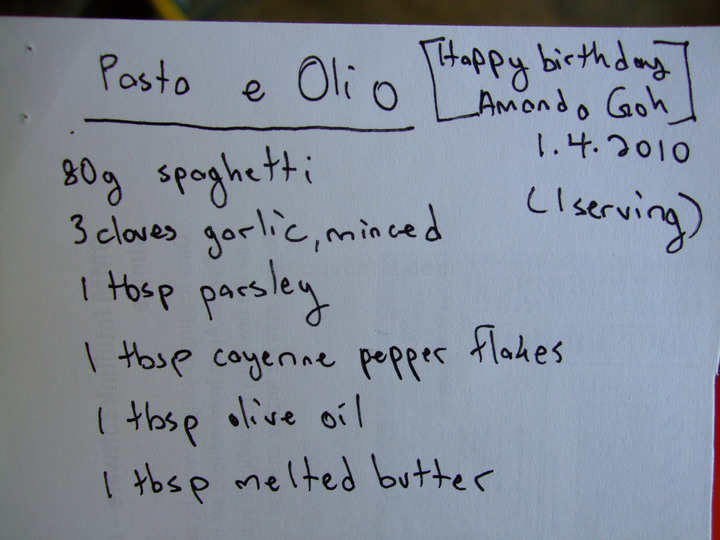 Pasta e Olio
[Happy birthday
Amanda Goh]
1.4.2010
(1 serving)
80g spaghetti
3 cloves garlic, minced
1 tbsp parsley
1 tbsp cayenne pepper flakes
1 tbsp olive oil
1 tbsp melted butter